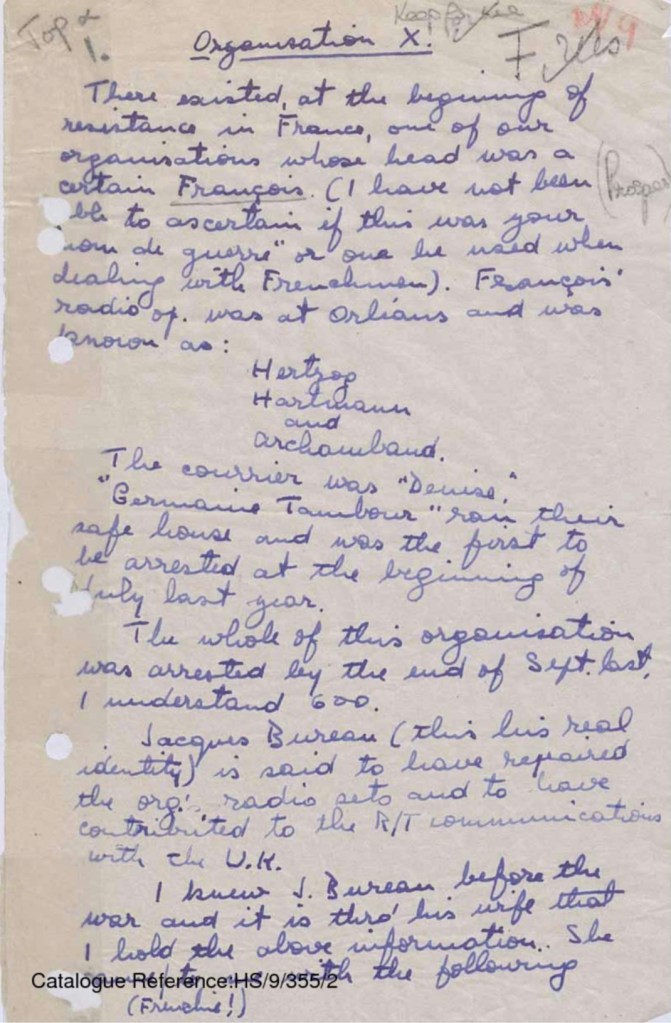 Top &
1.
Keep for
Organisation X.
There existed, at the beginning of
resistance in France, one of our
organisations whose head was a
certain François. (I have not been
(Prosper)
ble to ascertain if this was your
nom de guerre" or one he used when
dealing with Frenchmen). François'
radio op. was at Orléans and was
known as:
Hertzog
Hartmann
and
Archambaud.
The courrier was "Denise."
"Germaine Tambour" ran their
safe house and was the first to
be arrested at the beginning of
July last year.
The whole of this organisation
was arrested by the end of Sept. last,
I understand 600.
Jacques Bureau (this his real
identity) is said to have repaired
the org's. radio sets and to have
contributed to the R/T communications
with the U.K.
I knew J. Bureau before the
war and it is thro' his wife that
I hold the above information. She
came to me with the following
(Frenchie!)
Catalogue Reference:HS/9/355/2